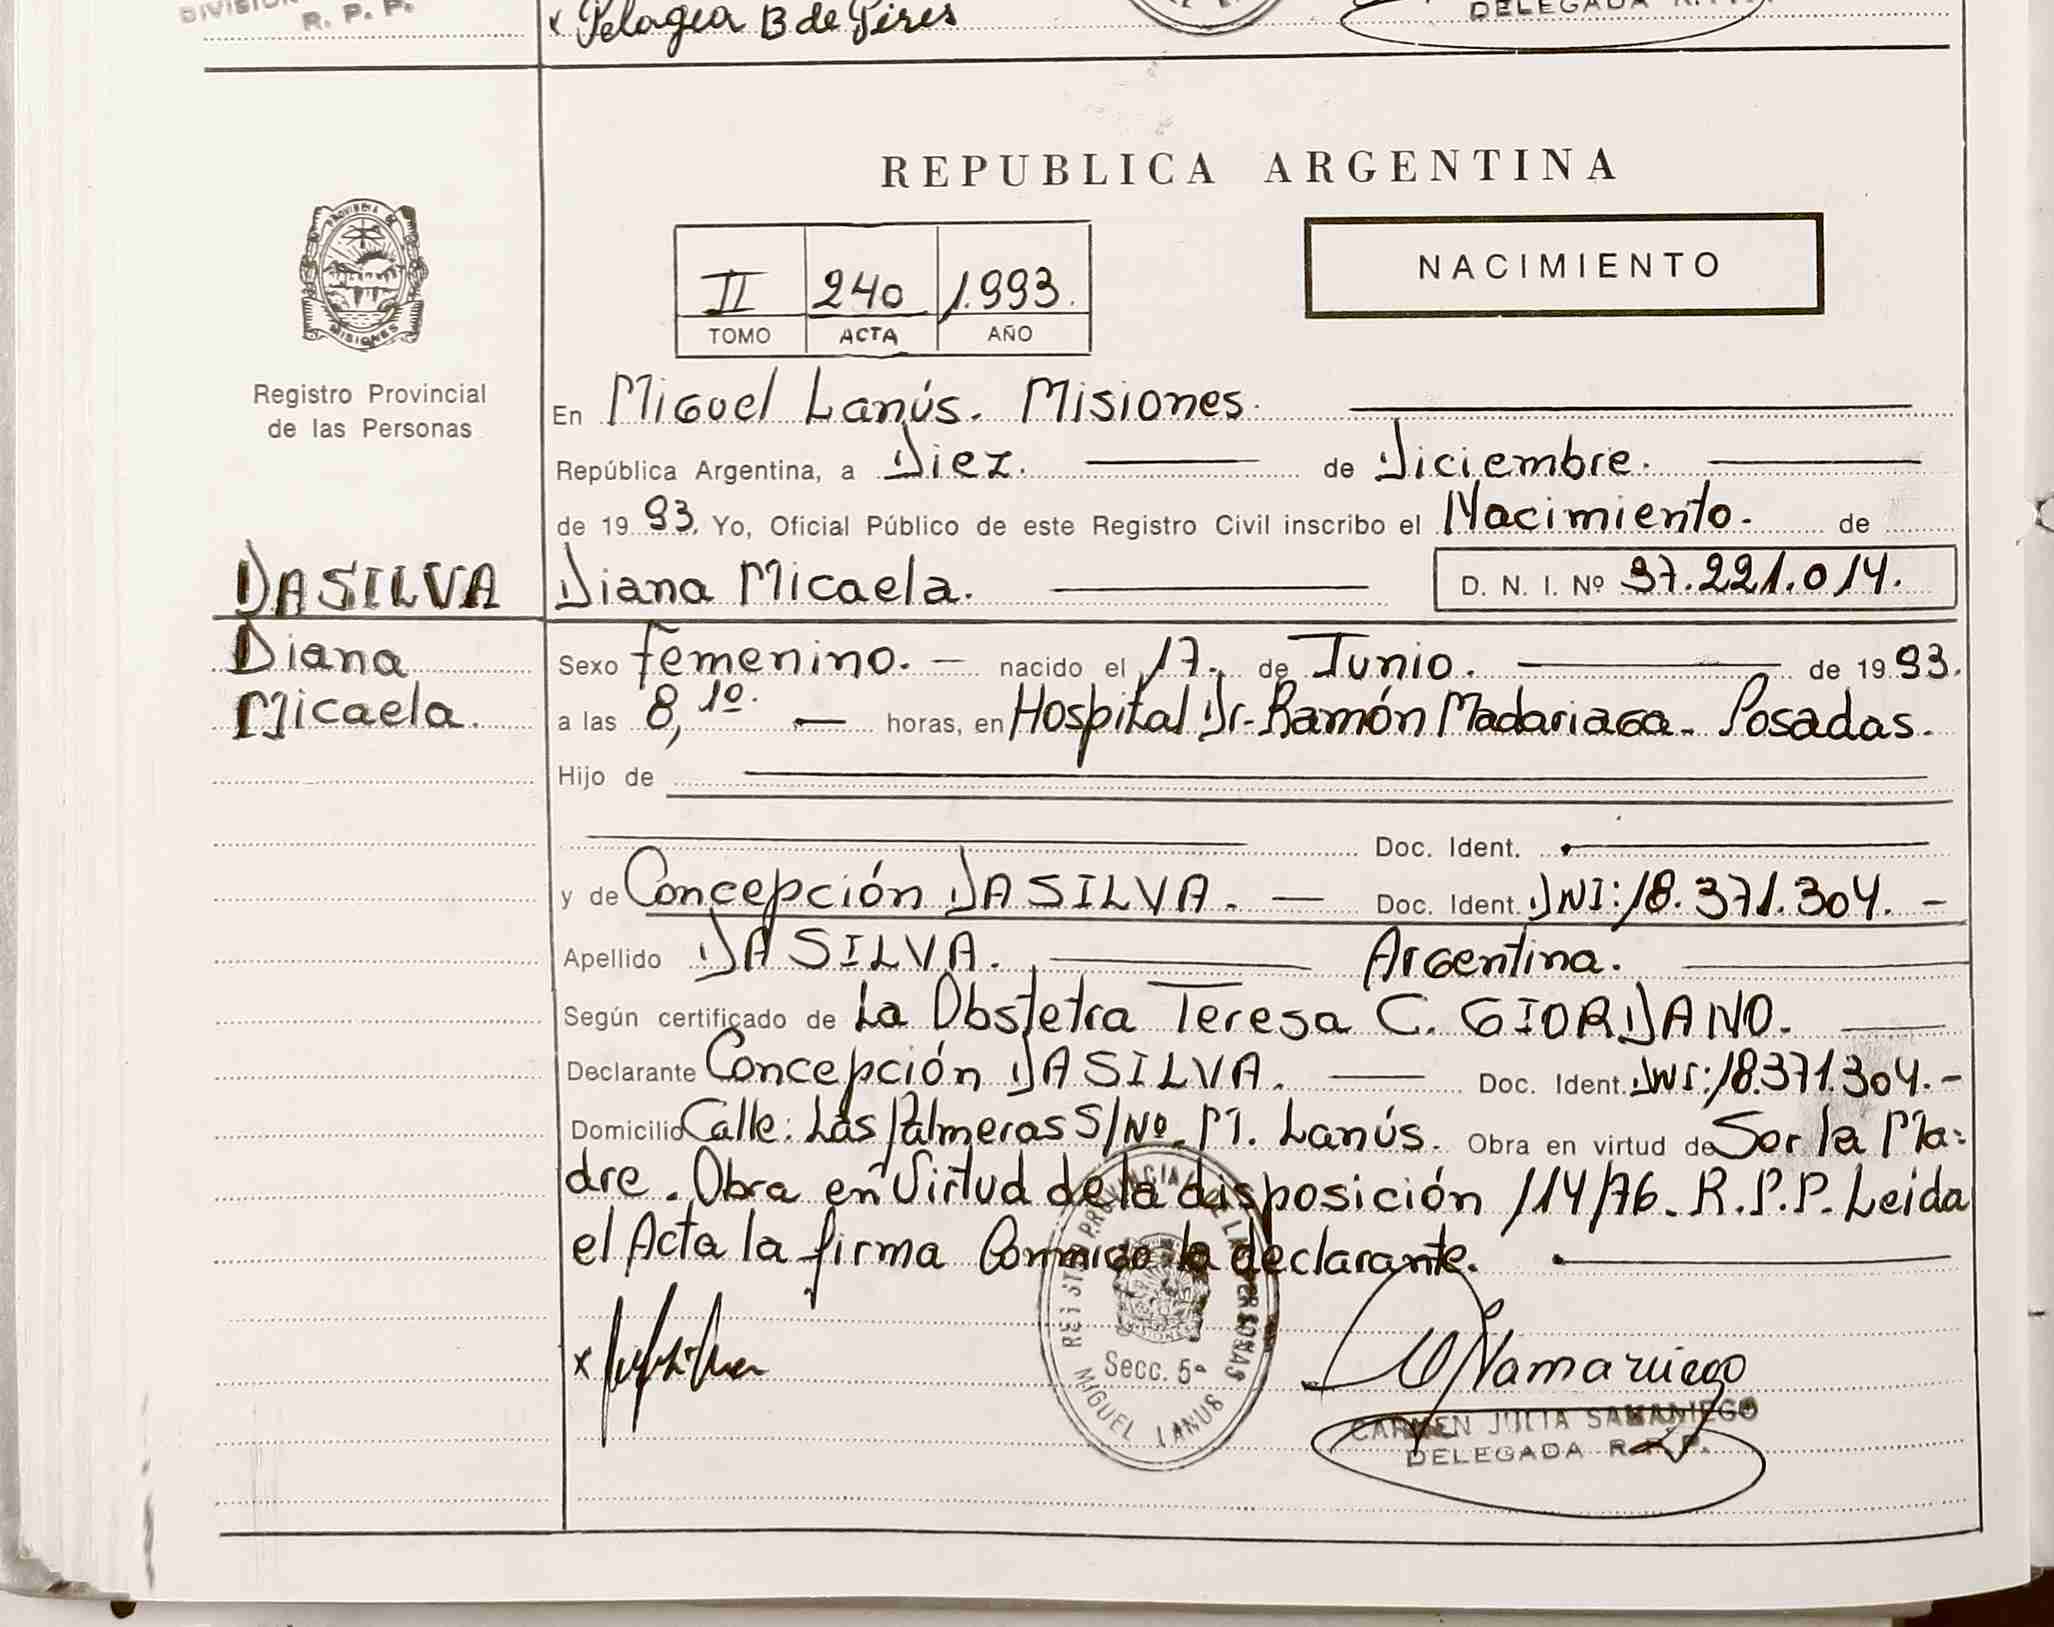 DIVISION
R. P. P.
x Pelagia B de Pires
DELEGADA R.P.P.
REPUBLICA ARGENTINA
PROVINCIA DE
MISIONES
II 240 1.993.
TOMO ACTA AÑO
NACIMIENTO
Registro Provincial
de las Personas
En Miguel Lanús. Misiones.
República Argentina, a Diez. de Diciembre.
de 19 93. Yo, Oficial Público de este Registro Civil inscribo el Nacimiento. de
DASILVA Diana Micaela. D. N. I. Nº 37.221.014.
Diana
Micaela.
Sexo Femenino. — nacido el 17. de Junio. de 19 93.
a las 8,10. — horas, en Hospital Dr. Ramón Madariaga. Posadas.
Hijo de
Doc. Ident.
y de Concepción DA SILVA. — Doc. Ident. DNI: 18.371.304. -
Apellido DA SILVA. Argentina.
Según certificado de La Obstetra Teresa C. GIORDANO.
Declarante Concepción DA SILVA. — Doc. Ident. DNI: 18.371.304. -
Domicilio Calle: Las Palmeras S/Nº. M. Lanús. Obra en virtud de Ser la Ma-
dre. Obra en Virtud de la disposición 114/76. R.P.P. Leida
el Acta la firma Conmigo la declarante.
x
REGISTRO PROVINCIAL DE LAS PERSONAS
Secc. 5ª
MIGUEL LANUS
Samaniego
CARMEN JULIA SAMANIEGO
DELEGADA R.P.P.